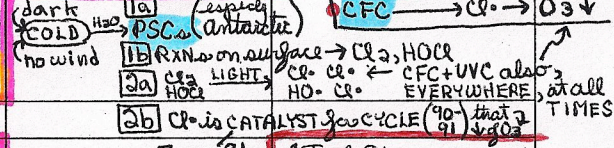 dark
COLD
no wind
H2O
1a (especially
PSCs Antarctic)
CFC → Cl· → O3 ↓
1b RXNs on surface → Cl2, HOCl
2a Cl2 LIGHT → Cl· Cl· ← CFC + UVC also,
HOCl HO· Cl· EVERYWHERE, at all
TIMES
2b Cl· is CATALYST for CYCLE (90-91) that
↓ of O3